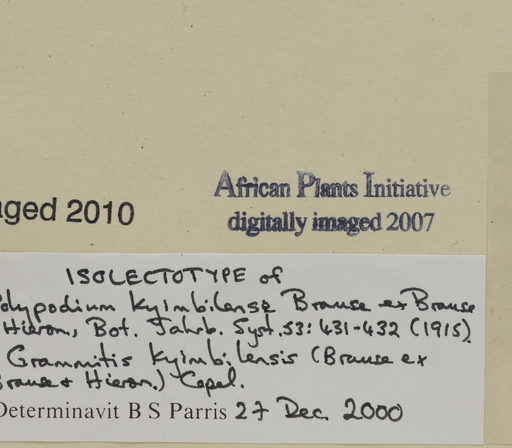 African Plants Initiative
digitally imaged 2007
aged 2010
ISOLECTOTYPE of
Polypodium kyimbilense Brause ex Brause
Hieron, Bot. Jahrb. Syst. 53: 431-432 (1915).
Grammitis kyimbilensis (Brause ex
Brause & Hieron.) Copel.
Determinavit B S Parris 27 Dec 2000